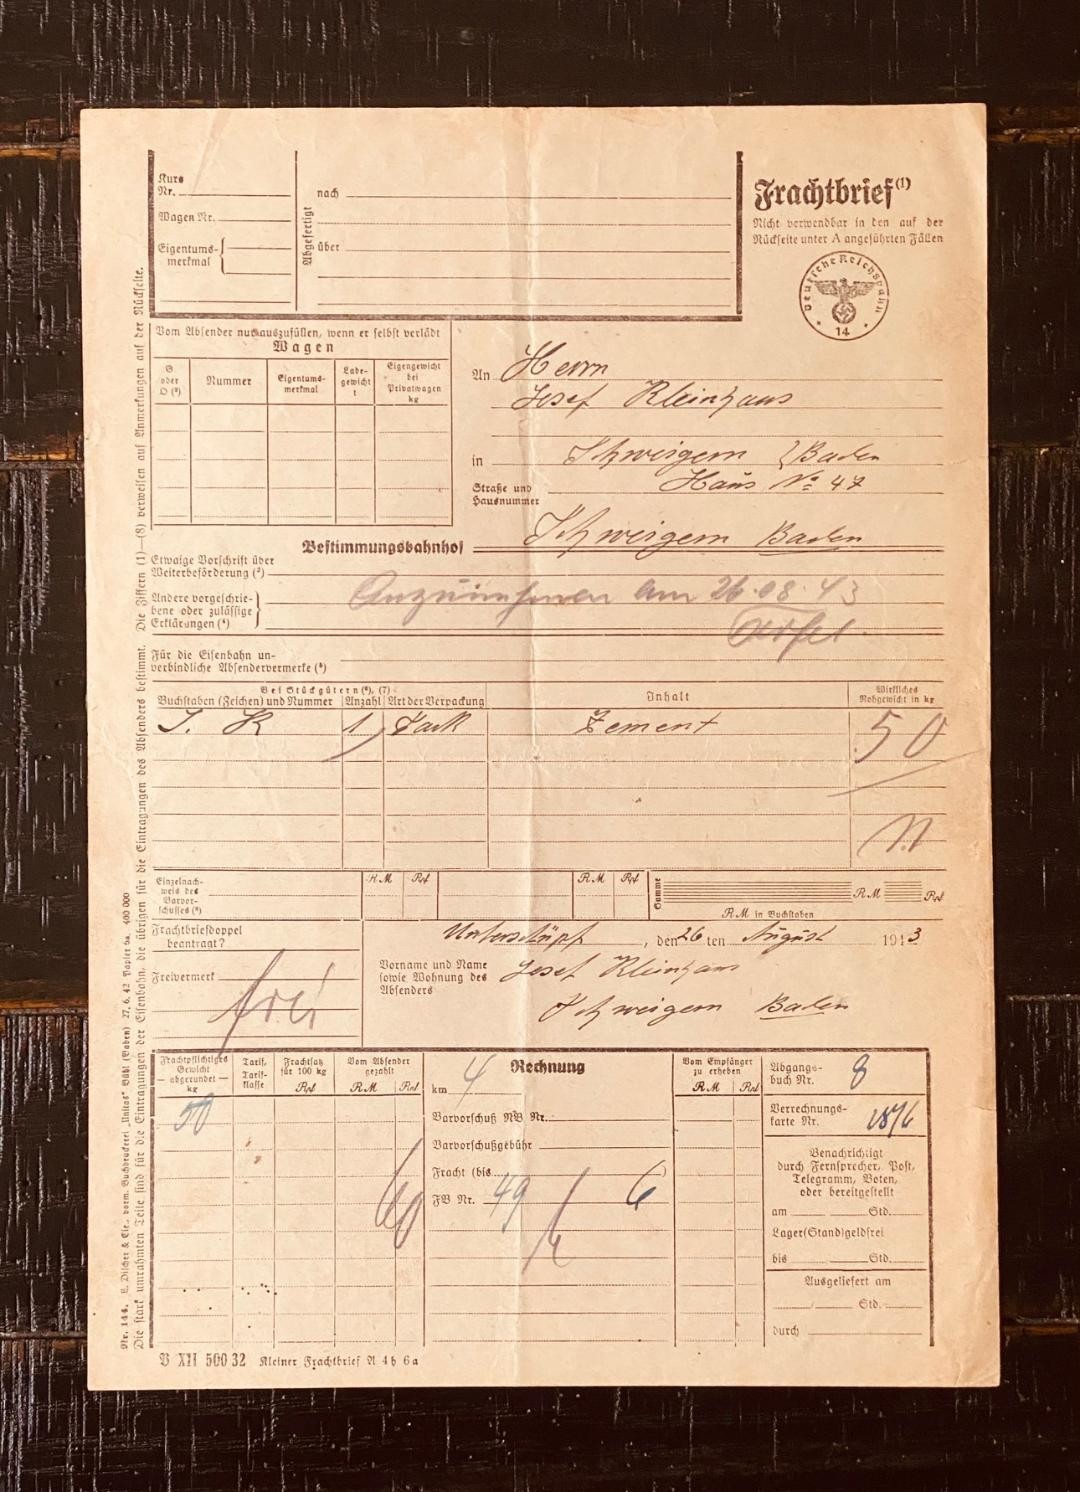 Kurs
Nr.
Wagen Nr.
Eigentums-
merkmal
Abgefertigt
nach
über
Frachtbrief (1)
Nicht verwendbar in den auf der
Rückseite unter A angeführten Fällen
Deutsche Reichsbahn
14
Vom Absender nur auszufüllen, wenn er selbst verlädt
Wagen
G oder O (2)
Nummer
Eigentums-
merkmal
Lade-
gewicht
t
Eigengewicht
bei
Privatwagen
kg
An Herrn
Josef Kleinhans
in Schweigern Baden
Straße und
Hausnummer
Haus No 47
Bestimmungsbahnhof Schweigern Baden
Etwaige Vorschrift über
Weiterbeförderung (3)
Andere vorgeschrie-
bene oder zulässige
Erklärungen (4)
Anzunehmen am 26.08.43
Für die Eisenbahn un-
verbindliche Absendervermerke (5)
Bei Stückgütern (6), (7)
Buchstaben (Zeichen) und Nummer
Anzahl
Art der Verpackung
Inhalt
Wirkliches
Rohgewicht in kg
J. K 1 Sack Zement 50
Einzelnach-
weis des
Barvor-
schusses (8)
RM Rpf
RM Rpf
Summe
RM Rpf
RM in Buchstaben
Frachtbriefdoppel
beantragt?
Freivermerk
frei
Unterschüpf, den 26 ten August 1943
Vorname und Name
sowie Wohnung des
Absenders
Josef Kleinhans
Schweigern Baden
Frachtpflichtiges
Gewicht
— abgerundet —
kg
50
Tarif.
Tarif-
klasse
Frachtsatz
für 100 kg
Rpf
Vom Absender
gezahlt
RM Rpf
60
Rechnung
km 4
Barvorschuß NB Nr.
Barvorschußgebühr
Fracht (bis )
FB Nr. 49 6
Vom Empfänger
zu erheben
RM Rpf
Abgangs-
buch Nr. 8
Verrechnungs-
karte Nr.
Benachrichtigt
durch Fernsprecher, Post,
Telegramm, Boten,
oder bereitgestellt
am Std.
Lager(Stand)geldfrei
bis Std.
Ausgeliefert am
Std.
durch
B XII 500 32 Kleiner Frachtbrief A 4 h 6a
Die Ziffern (1)—(8) verweisen auf Anmerkungen auf der Rückseite.
Die stark umrahmten Teile sind für die Eintragungen der Eisenbahn, die übrigen für die Eintragungen des Absenders bestimmt.
Nr. 144. E. Discher & Cie., vorm. Buchdruckerei „Unitas" Bühl (Baden) 27. 6. 42 Papier ba. 400 000